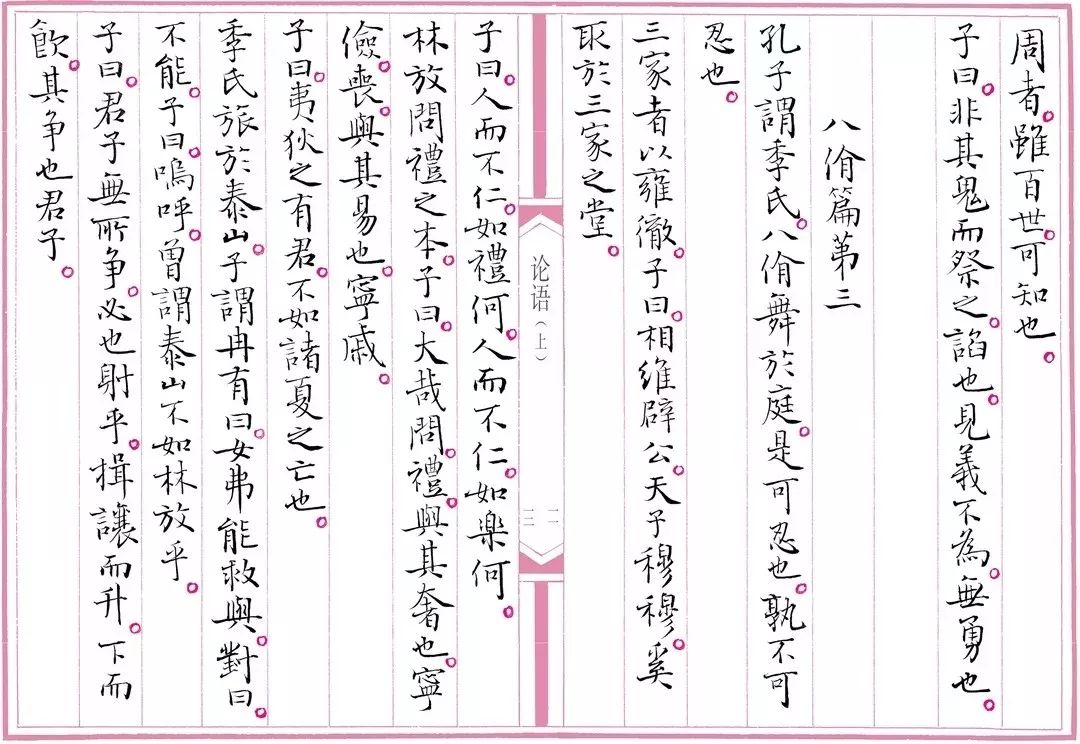 周者。雖百世。可知也。
子曰。非其鬼而祭之。諂也。見義不為。無勇也。
八佾篇第三
孔子謂季氏。八佾舞於庭。是可忍也。孰不可
忍也。
三家者以雍徹。子曰。相維辟公。天子穆穆。奚
取於三家之堂。
论语（上）
一二
三
子曰。人而不仁。如禮何。人而不仁。如樂何。
林放問禮之本。子曰。大哉問。禮。與其奢也。寧
儉。喪。與其易也。寧戚。
子曰。夷狄之有君。不如諸夏之亡也。
季氏旅於泰山。子謂冉有曰。女弗能救與。對曰。
不能。子曰。嗚呼。曾謂泰山不如林放乎。
子曰。君子無所争。必也射乎。揖讓而升。下而
飲。其争也君子。